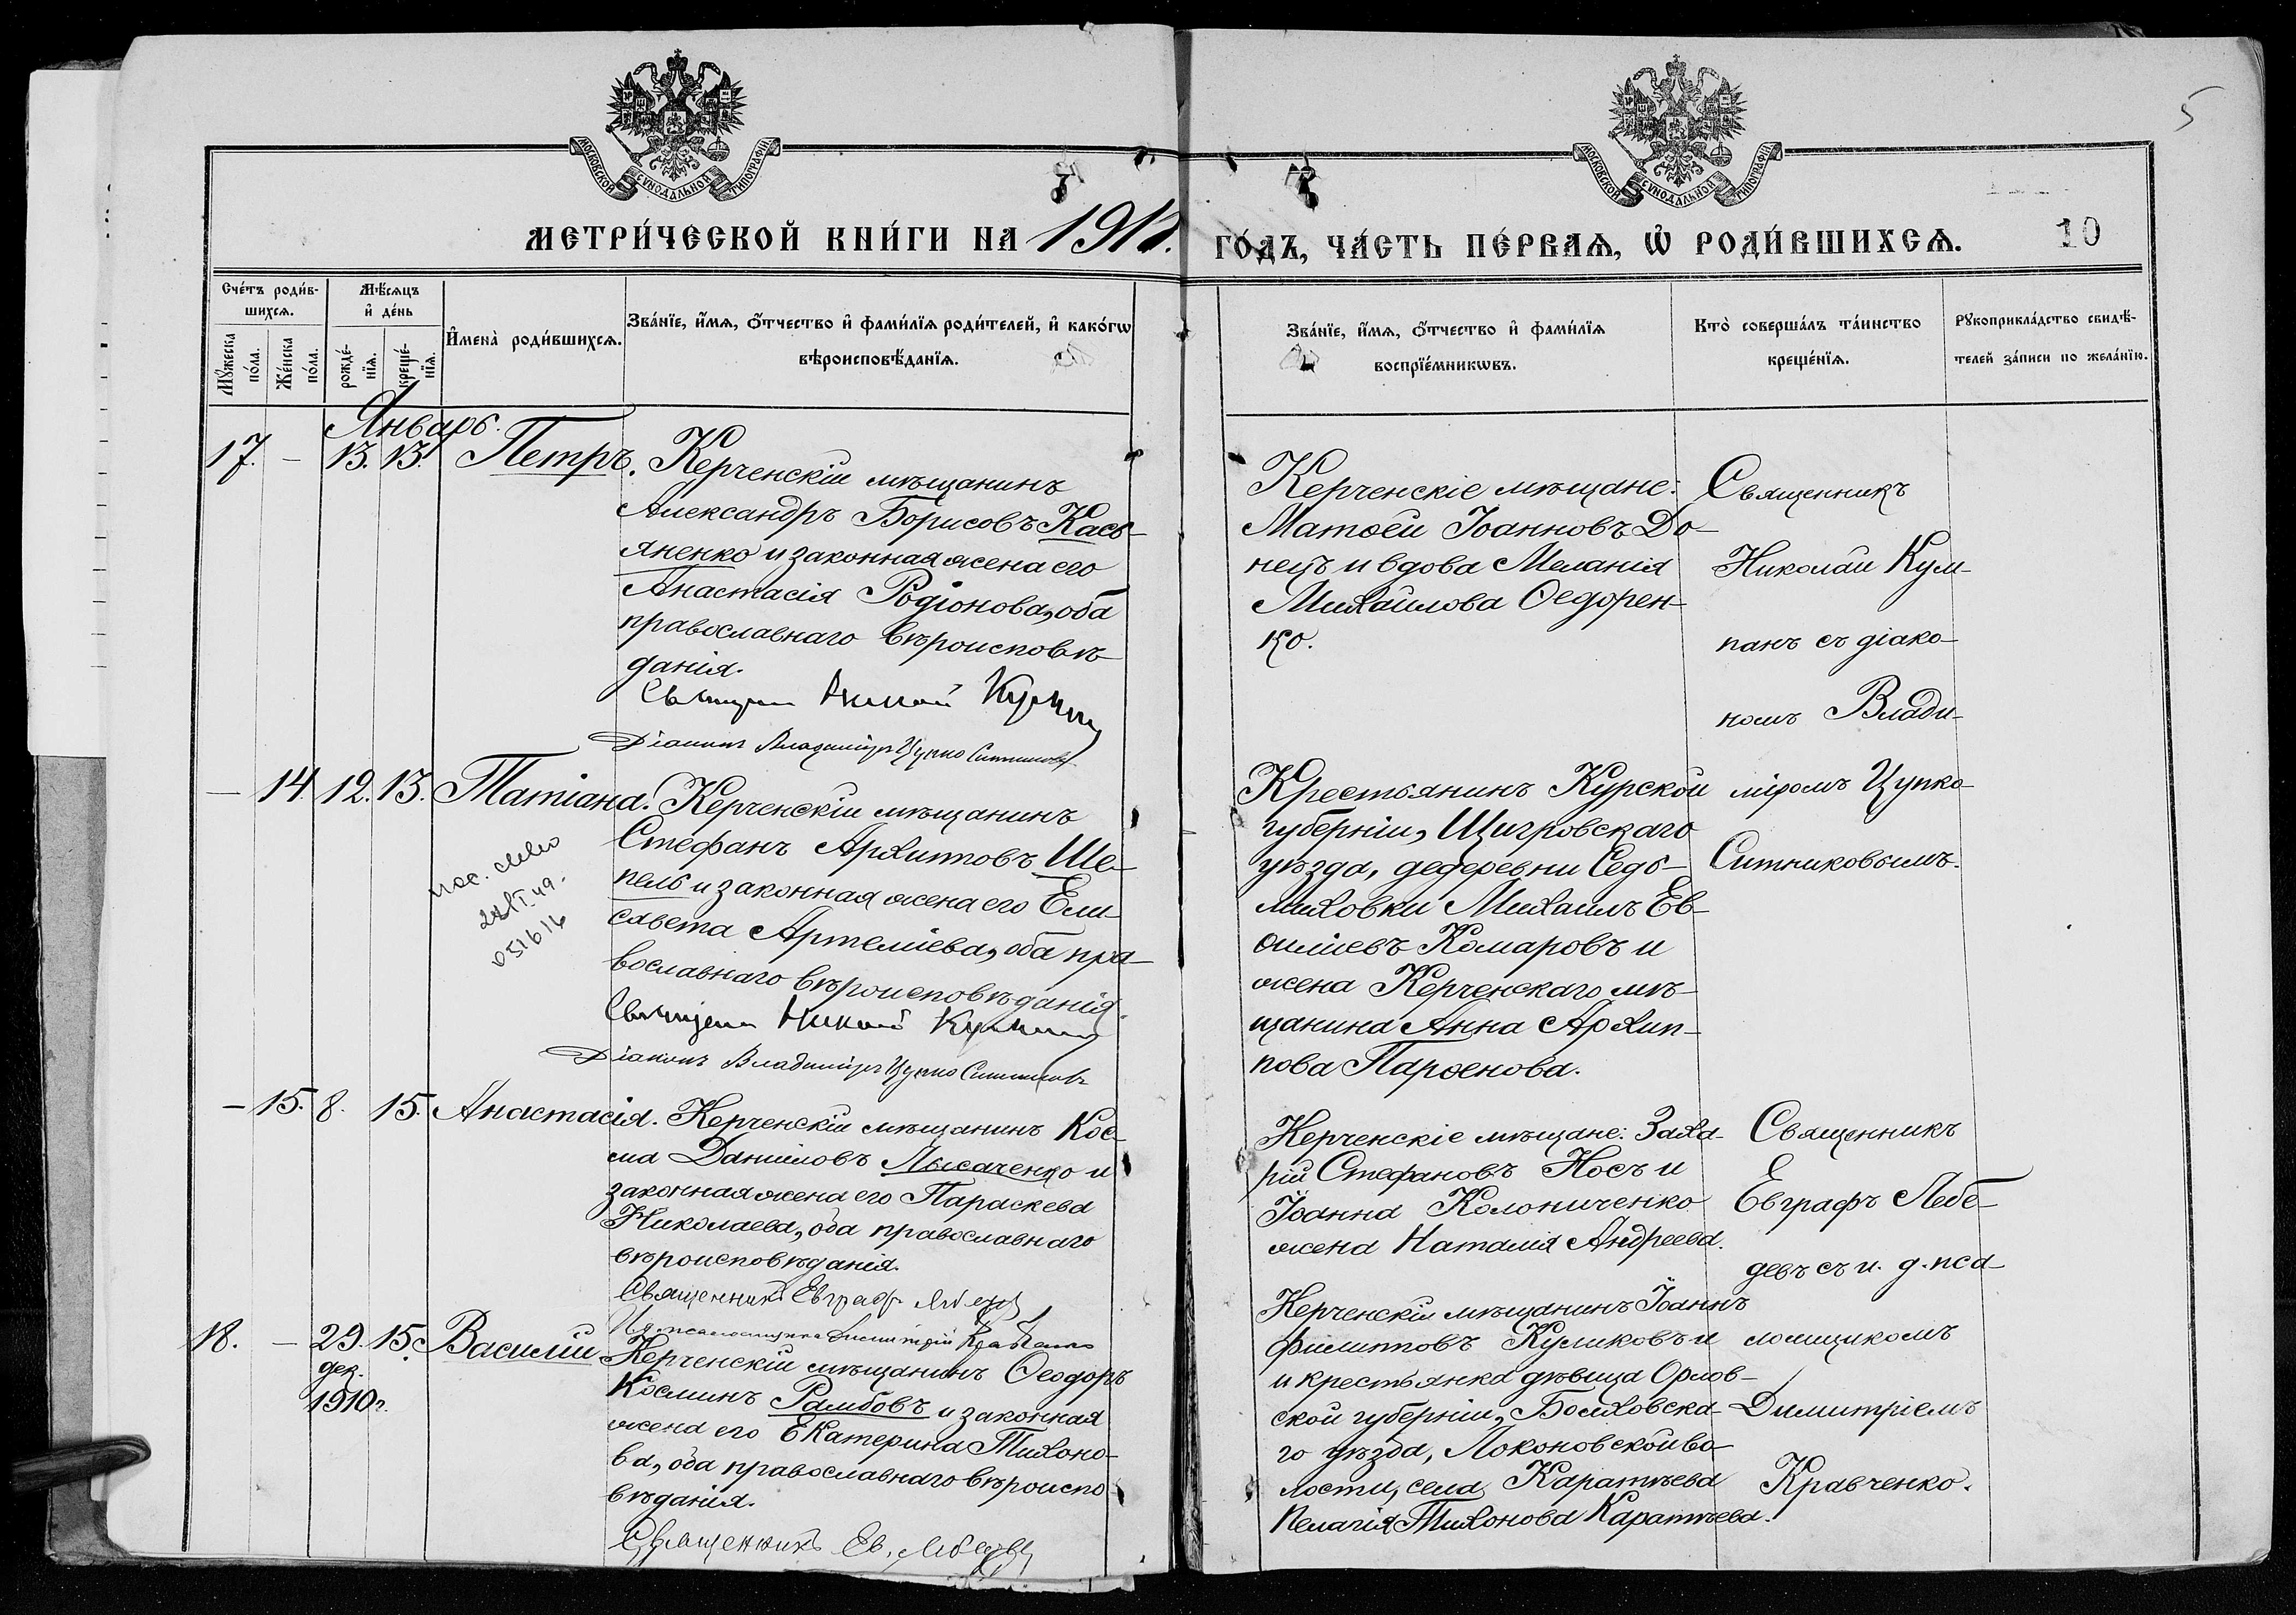 5
МОСКОВСКОЙ СѴНОДАЛЬНОЙ ТИПОГРАФІИ
МОСКОВСКОЙ СѴНОДАЛЬНОЙ ТИПОГРАФІИ
МЕТРИ́ЧЕСКОЙ КНИ́ГИ НА 191
ГО́ДЪ, ЧА́СТЬ ПЕ́РВАѦ, Ѡ҆ РОДИ́ВШИХСѦ.
10
Сче́тъ роди́в-
шихсѧ.
Мꙋ́жеска
по́ла.
Же́нска
по́ла.
Мѣ́сѧцъ
и҆ де́нь
рожде́-
нїѧ.
креще́-
нїѧ.
И҆мена̀ роди́вшихсѧ.
Зва́нїе, и҆́мѧ, ѻ҆́тчество и҆ фами́лїѧ роди́телей, и҆ како́гѡ
вѣроисповѣ́данїѧ.
Зва́нїе, и҆́мѧ, ѻ҆́тчество и҆ фами́лїѧ
воспрїе́мникѡвъ.
Кто̀ соверша́лъ та́инство
креще́нїѧ.
Рꙋкоприкла́дство свидѣ́-
телей за́писи по жела́нїю.
Январь.
17. – 13. 13. Петръ.
Керченскій мѣщанинъ
Александръ Борисовъ Kась-
яненко и законная жена его
Анастасія Родіонова, оба
православнаго вѣроисповѣ-
данія.
Николай
Діаконъ Владиміръ Цупко Ситниковъ
Керченскіе мѣщане:
Матѳей Іоанновъ До-
нецъ и вдова Меланія
Михайлова Ѳедорен-
ко.
Священникъ
Николай Кум-
панъ съ діако-
номъ Влади-
міромъ Цупко-
Ситниковымъ.
– 14. 12. 13. Татіана.
Керченскій мѣщанинъ
Стефанъ Архипповъ Ше-
пель и законная жена его Ели-
савета Артеміева, оба пра-
вославнаго вѣроисповѣданія.
Николай
Діаконъ Владиміръ Цупко Ситниковъ
051614
Крестьянинъ Курской
губерніи, Щигровскаго
уѣзда, дедеревни Седь-
миховки Михаилъ Ев-
ѳиміевъ Комаровъ и
жена Керченскаго мѣ-
щанина Анна Архип-
пова Парѳенова.
– 15. 8. 15. Анастасія.
Керченскій мѣщанинъ Кос-
ма Даніиловъ Лысаченко и
законная жена его Параскева
Николаева, оба православнаго
вѣроисповѣданія.
Священникъ Евграфъ Лебедевъ
И. д. псаломщика Димитрій Кравченко
Керченскіе мѣщане: Заха-
рій Стефановъ Носъ и
Іоанна Колониченко
жена Наталія Андреева.
Священникъ
Евграфъ Лебе-
девъ съ и. д. пса-
ломщикомъ
Димитріемъ
Кравченко.
18. – 29. 15. Василій
дек.
1910 г.
Керченскій мѣщанинъ Ѳеодоръ
Косминъ Рамбовъ и законная
жена его Екатерина Тихоно-
ва, оба православнаго вѣроиспо-
вѣданія.
Священникъ Ев. Лебедевъ
Керченскій мѣщанинъ Іоаннъ
Филипповъ Куликовъ и
и крестьянка дѣвица Орлов-
ской губерніи, Болховска-
го уѣзда, Локоновской во-
лости, села Каратѣева
Пелагія Тихонова Каратѣева.